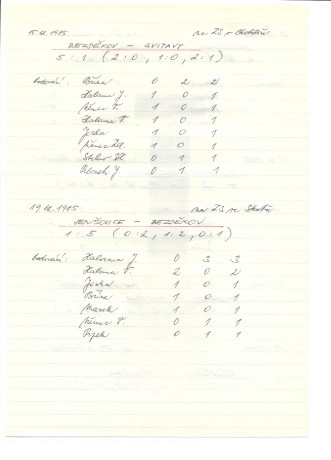 15.12.1985 na ZS v Chotěboři
BEZDĚKOV – SVITAVY
5 : 1 (2:0, 1:0, 2:1)
Bodování: Bříza 0 2 2
Halama J. 1 0 1
Němec V. 1 0 1
Halama V. 1 0 1
Joska 1 0 1
Němec Zd. 1 0 1
0 1 1
J. 0 1 1
19.12.1985 na ZS ve Skutči
JENIŠOVICE – BEZDĚKOV
1 : 5 (0:2, 1:2, 0:1)
Bodování: Halama J. 0 3 3
Halama V. 2 0 2
Joska 1 0 1
Bříza 1 0 1
Marek 1 0 1
Němec V. 0 1 1
0 1 1